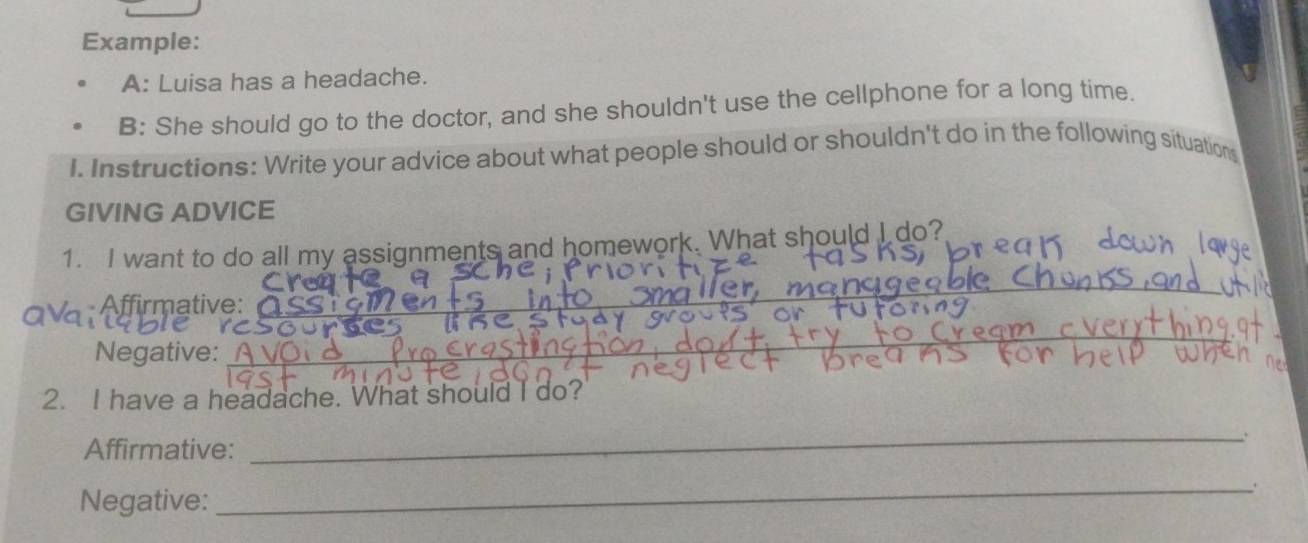 Example:
• A: Luisa has a headache.
• B: She should go to the doctor, and she shouldn't use the cellphone for a long time.
I. Instructions: Write your advice about what people should or shouldn't do in the following situations
GIVING ADVICE
1. I want to do all my assignments and homework. What should I do?
create a sche, prioritize tasks, break down large
Affirmative: assigments into smaller, manageable chonks, and utiliz
available resources like study groups or tutoring
Negative: Avoid Procrastination, don't, try to cream everything at
last minute, don't neglect breaks for help when ne
2. I have a headache. What should I do?
Affirmative:
Negative: